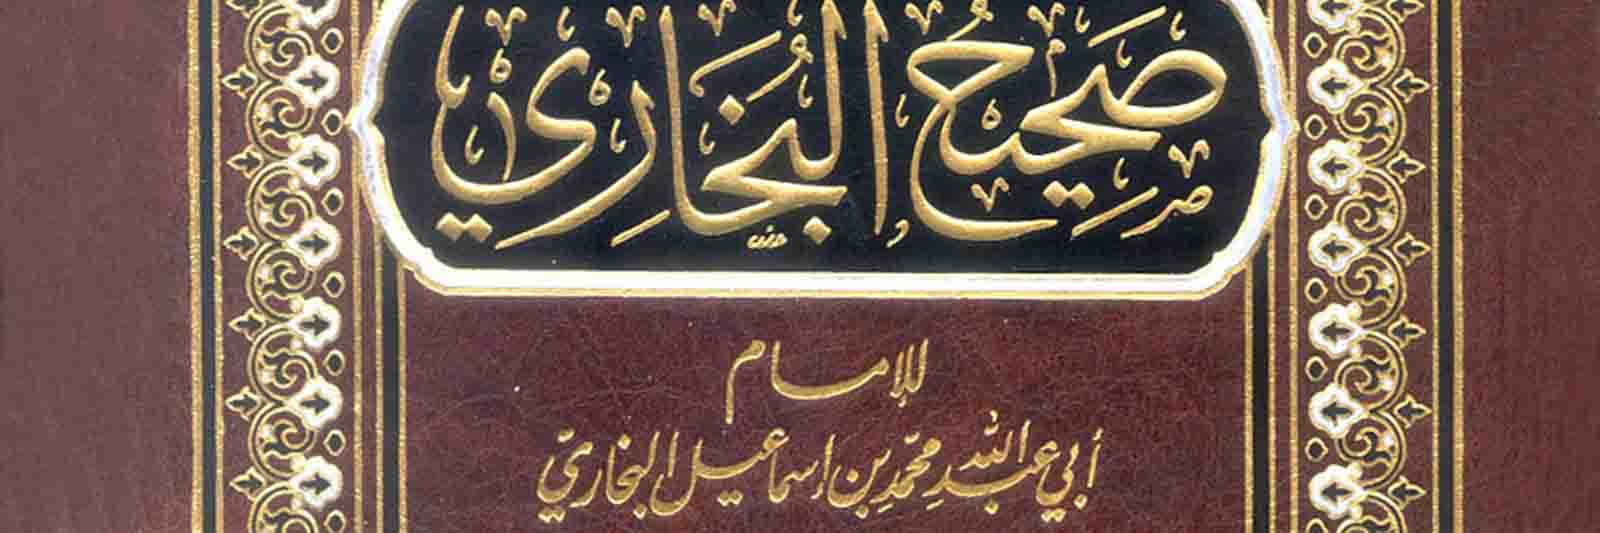 صَحِيحُ البُخَارِي
للإمام
أبي عبد الله محمّد بن إسماعيل البخاريّ